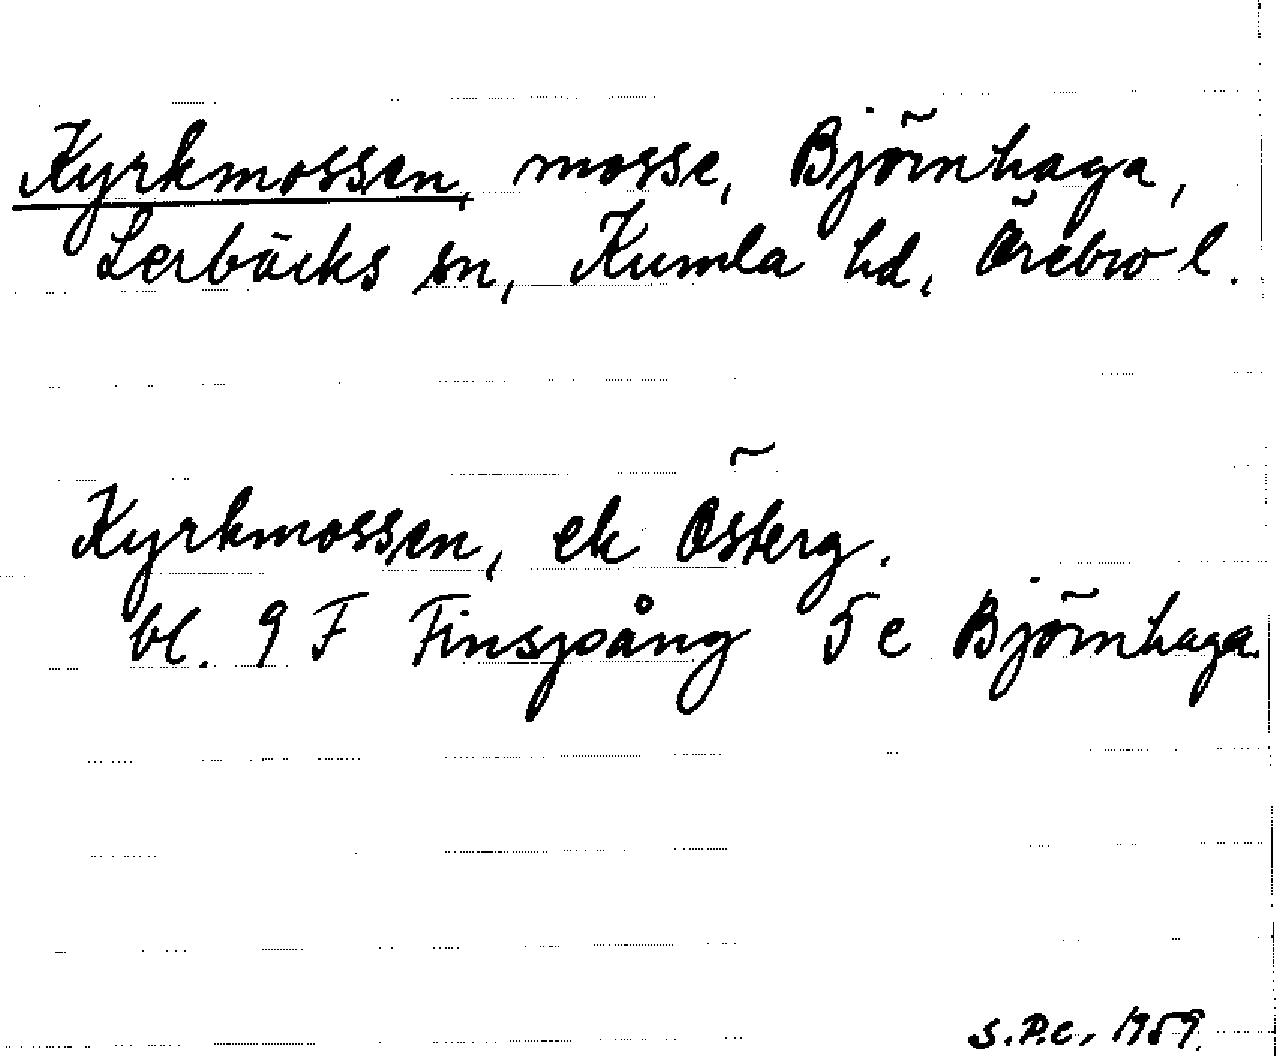 Kyrkmossen, mosse, Björnhaga,
Lerbäcks sn, Kumla hd, Örebro l.
Kyrkmossen, ek Österg.
bl. 9 F Finspång 5 e Björnhaga.
S.P.C, 1959.